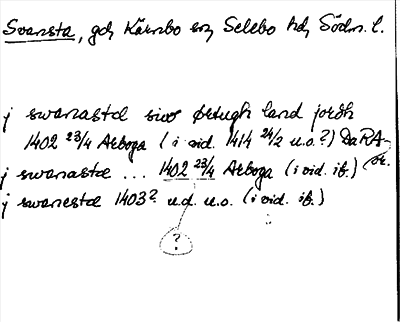 Svansta, gd, Kärnbo sn, Selebo hd, Södm. l.
j swanasta siw ørtugh land jordh
1402 23/4 Arboga (i vid. 1414 24/2 u.o.?) Da RA-
j swanasta ... 1402 23/4 Arboga (i vid. ib.)
j swanesta 1403? u.d. u.o. (i vid. ib.)
?